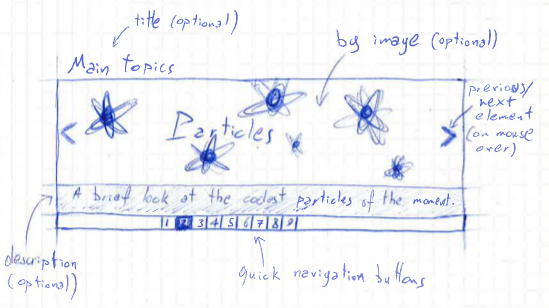 title (optional)
by image (optional)
Main topics
previous/
next
element
(on mouse
over)
<
Particles
>
A brief look at the coolest particles of the moment.
1 2 3 4 5 6 7 8 9
description
(optional)
quick navigation buttons